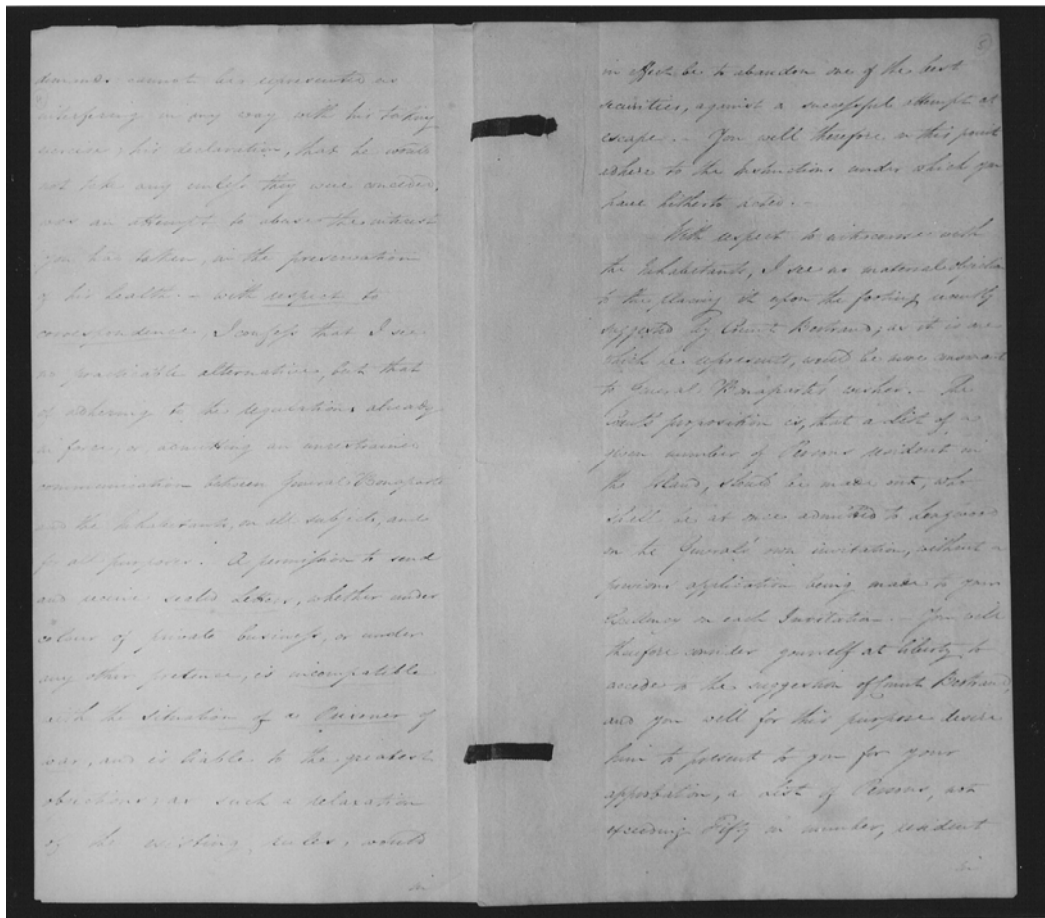 demand cannot be represented as
interfering in any way with his taking
exercise; his declaration, that he would
not take any unless they were conceded,
was an attempt to abuse the interest
you had taken, in the preservation
of his health. – with respect to
correspondence, I confess that I see
no practicable alternative, but that
of adhering to the regulations already
in force, or, admitting an unrestrained
communication between General Bonaparte
and the Inhabitants, on all subjects, and
for all purposes. A permission to send
and receive sealed Letters, whether under
colour of private business, or under
any other pretence, is incompatible
with the situation of a Prisoner of
war, and is liable to the greatest
objections; as such a relaxation
of the existing rules, would
in
in effect be to abandon one of the best
securities, against a successful attempt at
escape. – You will therefore in this point
adhere to the Instructions under which you
have hitherto acted. –
With respect to intercourse with
the Inhabitants, I see no material objection
to the placing it upon the footing recently
suggested by Count Bertrand; as it is one
which he represents, would be more consonant
to General Bonaparte's wishes. – The
Count's proposition is, that a List of a
given number of Persons resident in
the Island, should be made out, who
shall be at once admitted to Longwood
on the General's own invitation, without a
previous application being made to your
Excellency on each Invitation. – You will
therefore consider yourself at liberty to
accede to the suggestion of Count Bertrand,
and you will for this purpose desire
him to present to you for your
approbation, a List of Persons, not
exceeding Fifty in number, resident
in